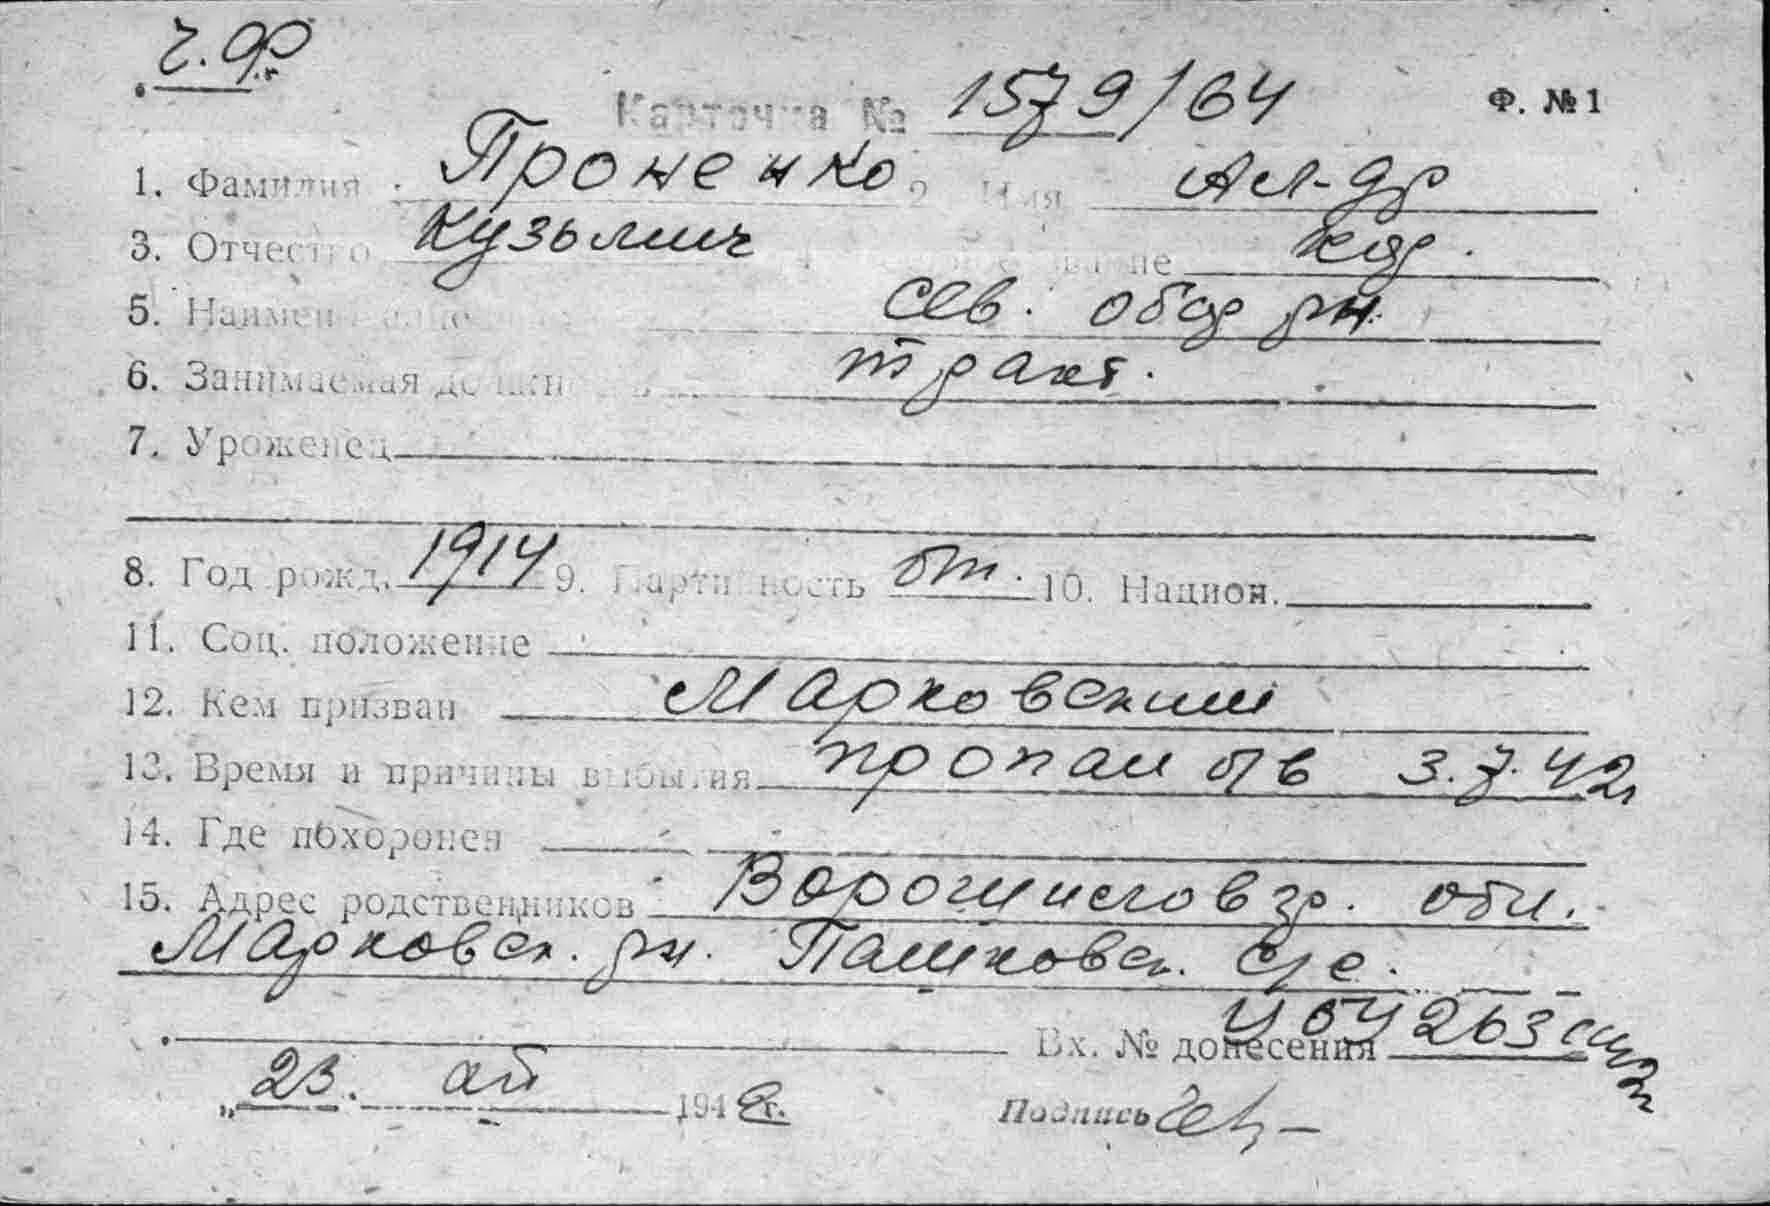 Ч.Ф
Карточка № 1579/64 Ф. №1
1. Фамилия Проненко 2. Имя Ал-др
3. Отчество Кузьмич
5. сев. обор рн.
6. Занимаемая тракт.
7. Уроженец
8. Год рожд. 1914 9. Партийность бп. 10. Национ.
11. Соц. положение
12. Кем призван Марковский
13. Время и причины выбытия пропал б/в 3.7.42г
14. Где похоронен
15. Адрес родственников Ворошиловгр. обл.
Марковск. рн. Пашковск. с/с.
Вх. № донесения
23. 194 г. Подпись